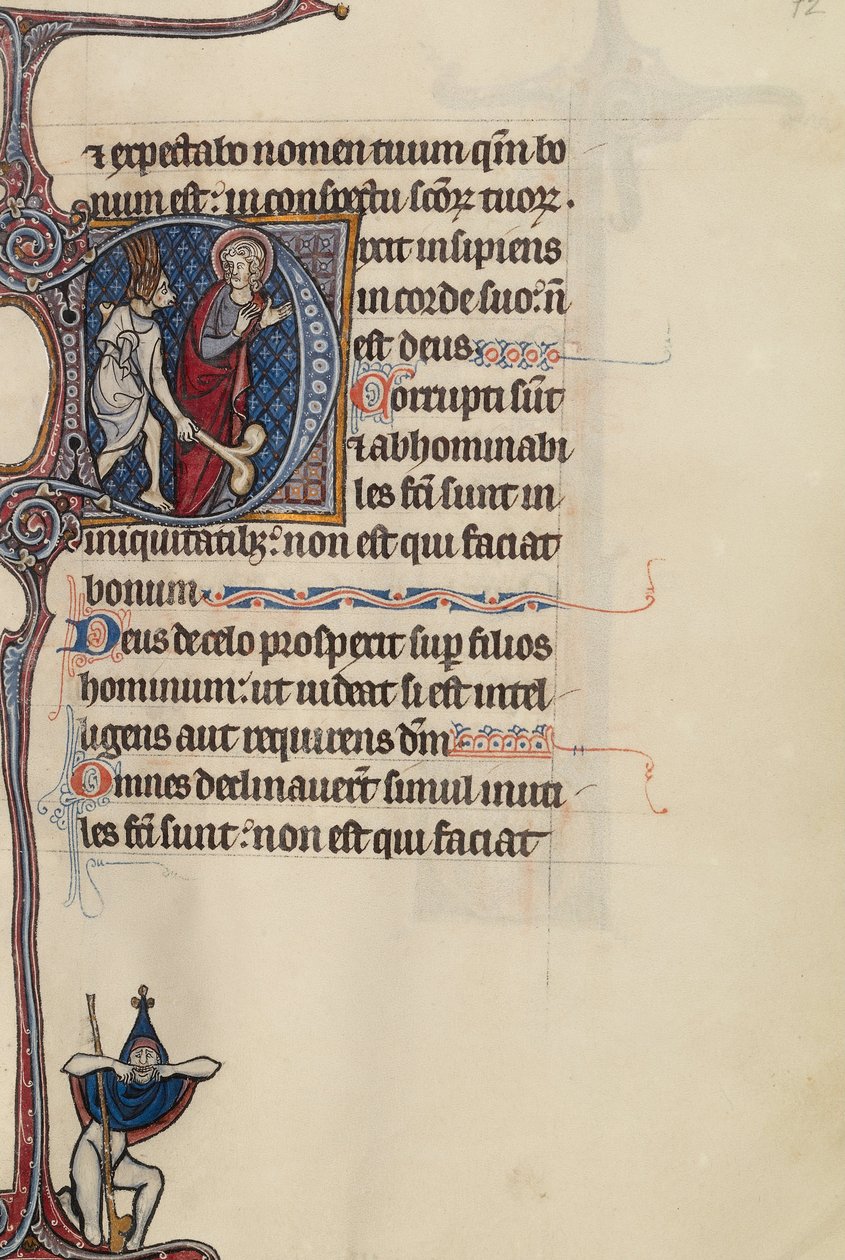 72
⁊ expectabo nomen tuum qm̅ bo
num est: in conspectu sc̅oꝝ tuoꝝ.
Dixit insipiens
in corde suo: n̅
est deus
Corrupti su̅t
⁊ abhominabi
les fc̅i sunt in
iniquitatibꝫ: non est qui faciat
bonum
Deus de celo prospexit sup̱ filios
hominum: ut uideat si est intel
ligens aut requirens dm̅
Omnes declinauer̅t simul inuti
les fc̅i sunt: non est qui faciat